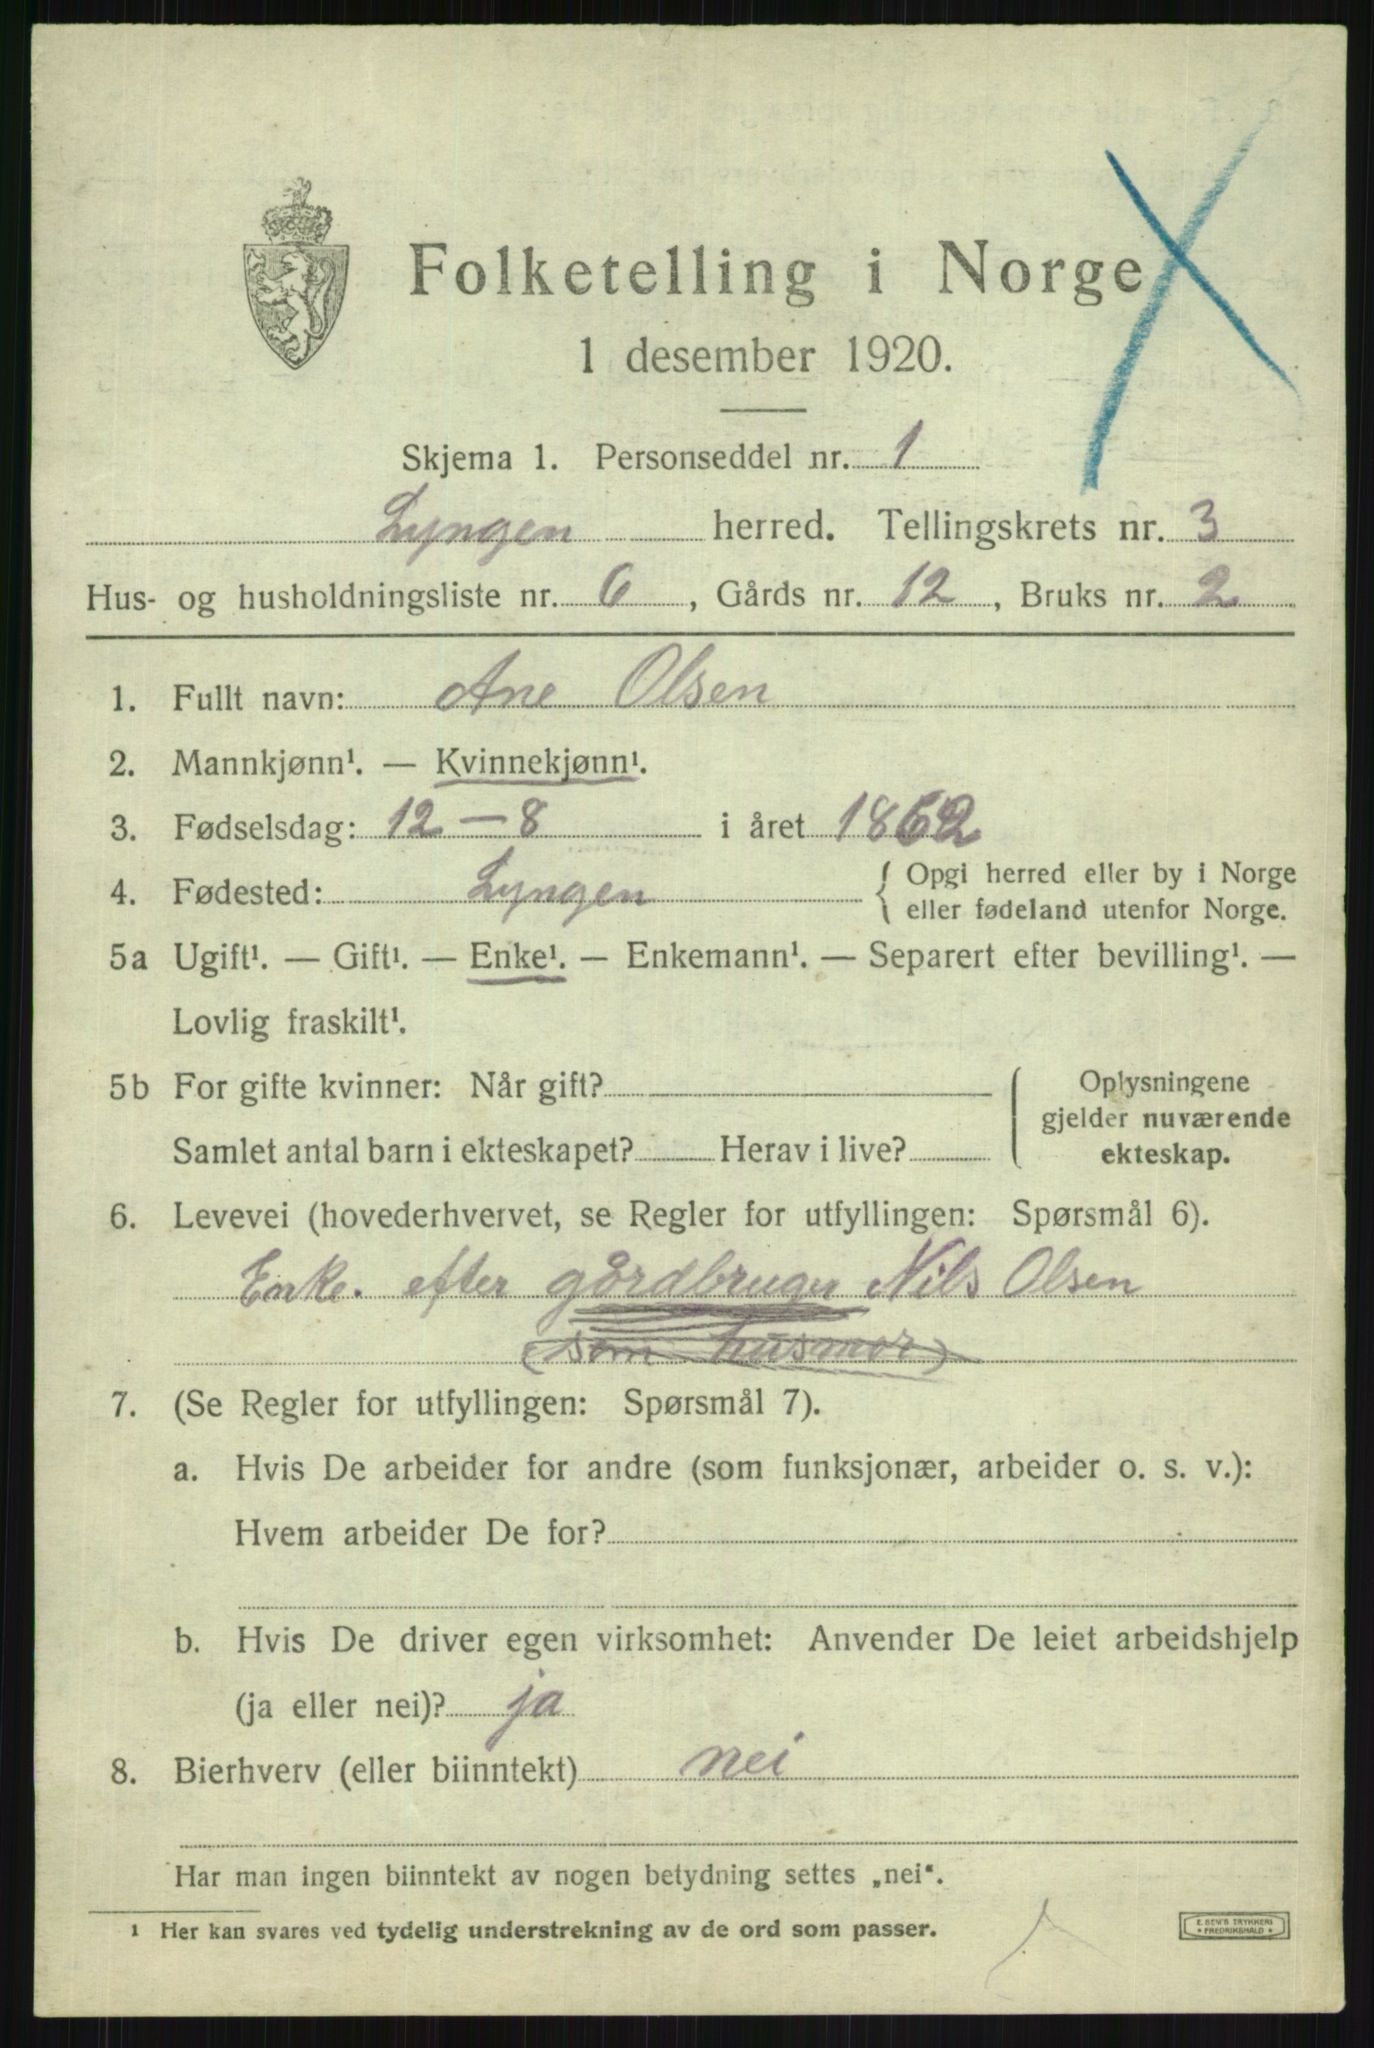 Folketelling i Norge
1 desember 1920.
Skjema 1. Personseddel nr. 1
Lyngen herred. Tellingskrets nr. 3
Hus- og husholdningsliste nr. 6, Gårds nr. 12, Bruks nr. 2
1. Fullt navn: Ane Olsen
2. Mannkjønn¹. — Kvinnekjønn¹.
3. Fødselsdag: 12 – 8 i året 1862
4. Fødested: Lyngen { Opgi herred eller by i Norge
eller fødeland utenfor Norge.
5a Ugift¹. — Gift¹. — Enke¹. — Enkemann¹. — Separert efter bevilling¹. —
Lovlig fraskilt¹.
5b For gifte kvinner: Når gift?
Samlet antal barn i ekteskapet? Herav i live?
Oplysningene
gjelder nuværende
ekteskap.
6. Levevei (hovederhvervet, se Regler for utfyllingen: Spørsmål 6).
Enke. efter gårdbruger Nils Olsen
(som husmor)
7. (Se Regler for utfyllingen: Spørsmål 7).
a. Hvis De arbeider for andre (som funksjonær, arbeider o. s. v.):
Hvem arbeider De for?
b. Hvis De driver egen virksomhet: Anvender De leiet arbeidshjelp
(ja eller nei)? ja
8. Bierhverv (eller biinntekt) nei
Har man ingen biinntekt av nogen betydning settes „nei“.
¹ Her kan svares ved tydelig understrekning av de ord som passer.
E. SEM'S TRYKKERI
* FREDRIKSHALD *